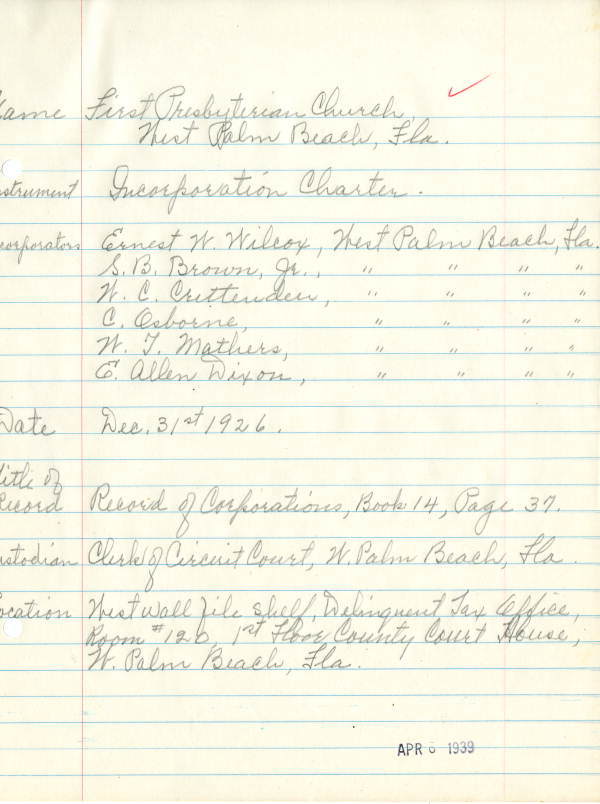 ame First Presbyterian Church,
West Palm Beach, Fla.
nstrument Incorporation Charter.
corporators Ernest W. Wilcox, West Palm Beach, Fla.
S. B. Brown, Jr., " " " "
W. C. Crittenden, " " " "
C. Osborne, " " " "
W. T. Mathers, " " " "
E. Allen Dixon, " " " "
Date Dec. 31st 1926.
itle of
Record Record of Corporations, Book 14, Page 37.
ustodian Clerk of Circuit Court, W. Palm Beach, Fla.
ocation West wall file shelf, Delinquent Tax Office,
Room #120, 1st Floor County Court House,
W. Palm Beach, Fla.
APR 6 1939